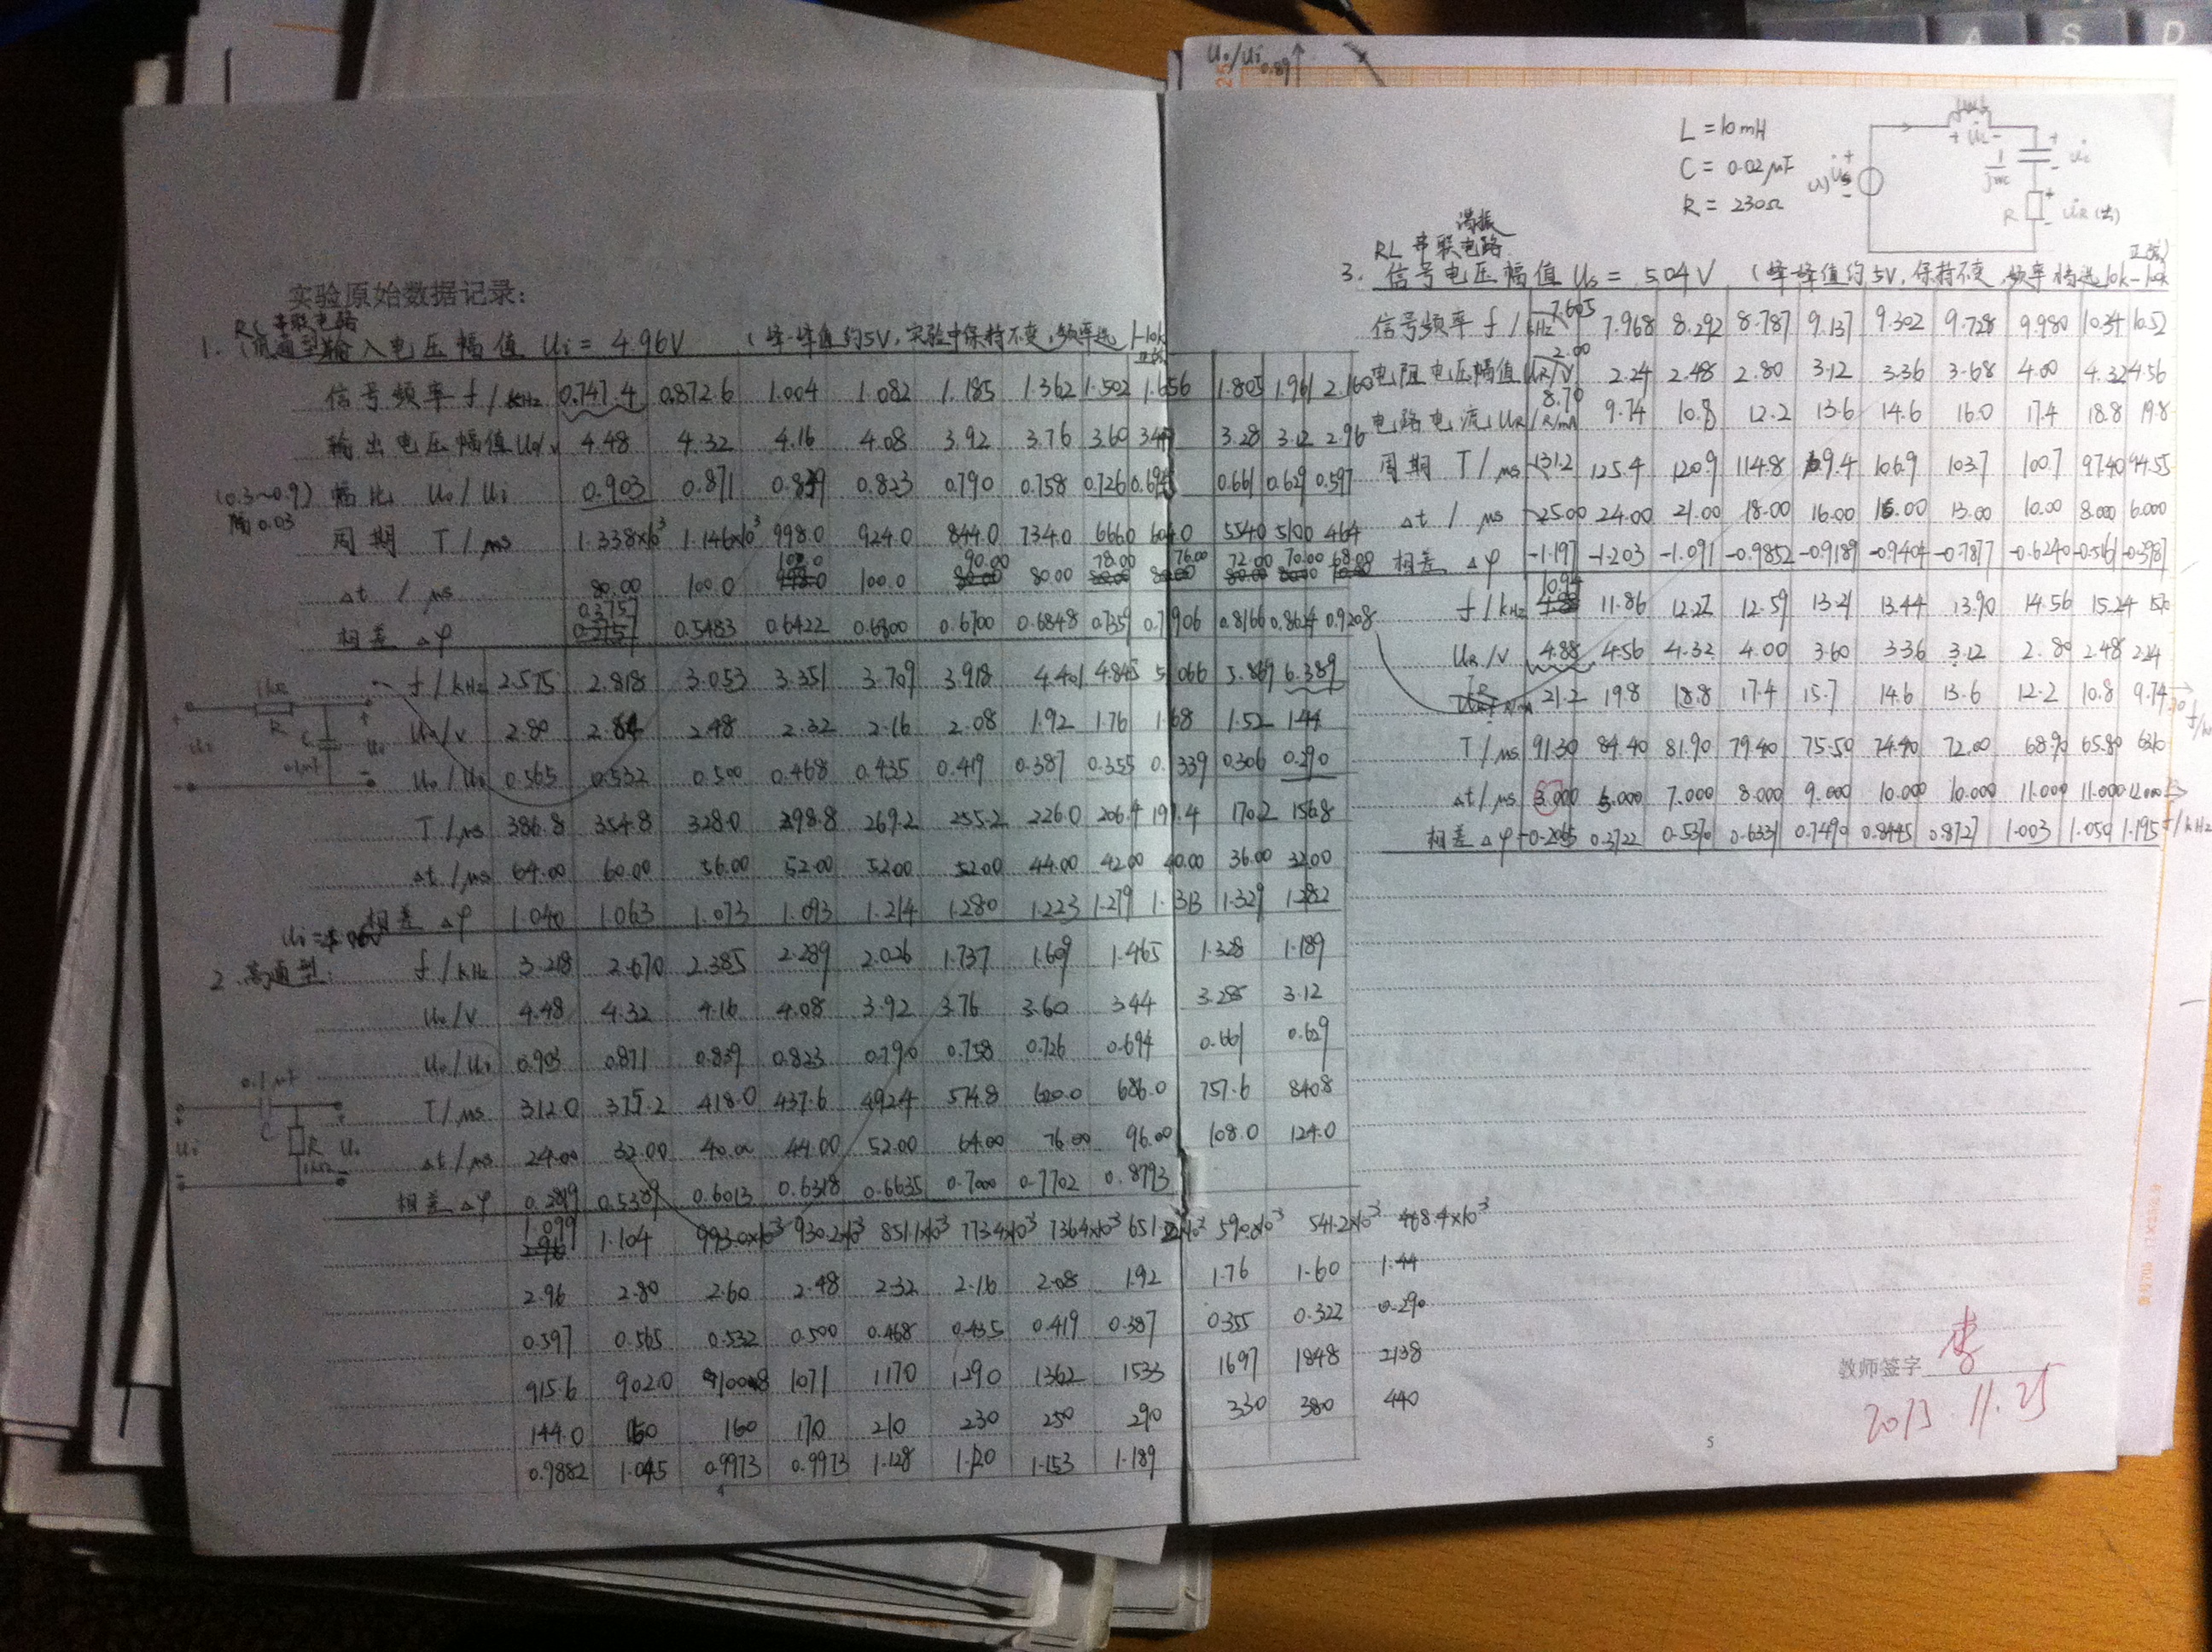 实验原始数据记录:
RL 串联电路
1. (低通型) 输入电压幅值 Ui = 4.96V (峰-峰值约5V, 实验中保持不变, 频率选 1-10k
信号频率 f / kHz 0.747.4 0.872.6 1.004 1.082 1.185 1.362 1.502 1.656 1.805 1.961 2.160
输出电压幅值 Uo/v 4.48 4.32 4.16 4.08 3.92 3.76 3.60 3.44 3.28 3.12 2.96
(0.3~0.9) 幅比 Uo / Ui 0.903 0.871 0.839 0.823 0.790 0.758 0.726 0.694 0.661 0.629 0.597
隔 0.03
周期 T / μs 1.338×10³ 1.146×10³ 998.0 924.0 844.0 734.0 666.0 604.0 554.0 510.0 464
Δt / μs 80.00 100.0 102.0 100.0 90.00 80.00 78.00 76.00 72.00 70.00 68.00
相差 Δφ 0.3757 0.5483 0.6422 0.6800 0.6700 0.6848 0.7359 0.7906 0.8166 0.8624 0.9208
f / kHz 2.575 2.818 3.053 3.351 3.709 3.918 4.401 4.845 5.066 5.869 6.389
Uo/V 2.80 2.64 2.48 2.32 2.16 2.08 1.92 1.76 1.68 1.52 1.44
Uo/Ui 0.565 0.532 0.500 0.468 0.435 0.419 0.387 0.355 0.339 0.306 0.290
T / μs 386.8 354.8 328.0 298.8 269.2 255.2 226.0 206.4 191.4 170.2 156.8
Δt / μs 64.00 60.00 56.00 52.00 52.00 52.00 44.00 42.00 40.00 36.00 32.00
相差 Δφ 1.040 1.063 1.073 1.093 1.214 1.280 1.223 1.279 1.313 1.329 1.282
1kΩ
R
C
0.1μF
Ui
Uo
2. 高通型:
f / kHz 3.218 2.670 2.385 2.289 2.026 1.737 1.609 1.465 1.328 1.189
Uo/V 4.48 4.32 4.16 4.08 3.92 3.76 3.60 3.44 3.285 3.12
Uo/Ui 0.903 0.871 0.839 0.823 0.790 0.758 0.726 0.694 0.661 0.629
T / μs 312.0 375.2 418.0 437.6 492.4 574.8 620.0 686.0 757.6 840.8
Δt / μs 24.00 32.00 40.00 44.00 52.00 64.00 76.00 96.00 108.0 124.0
相差 Δφ 0.2819 0.5389 0.6013 0.6318 0.6635 0.7000 0.7702 0.8793
0.1μF
C
R
1kΩ
Ui
Uo
1.099 1.104 993.0×10³ 930.2×10³ 851.1×10³ 773.4×10³ 736.4×10³ 590.0×10³ 541.2×10³ 468.4×10³
2.96 2.80 2.60 2.48 2.32 2.16 2.08 1.92 1.76 1.60 1.44
0.597 0.565 0.532 0.500 0.468 0.435 0.419 0.387 0.355 0.322 0.290
915.6 902.0 1071 1170 1290 1362 1533 1697 1848 2138
144.0 160 160 170 210 230 250 290 330 380 440
0.9882 1.045 0.9973 0.9973 1.128 1.120 1.153 1.189
Uo/Ui
0.89
L = 10mH
C = 0.02μF
R = 230Ω
R
谐振
RL 串联电路
3. 信号电压幅值 Us = 5.04V (峰-峰值约5V, 保持不变, 频率档选10k-
信号频率 f / kHz 7.605 7.968 8.292 8.787 9.137 9.302 9.728 9.980 10.34 10.52
电阻电压幅值 UR/V 2.00 2.24 2.48 2.80 3.12 3.36 3.68 4.00 4.32 4.56
电路电流 UR/R/mA 8.70 9.74 10.8 12.2 13.6 14.6 16.0 17.4 18.8 19.8
周期 T / μs 131.2 125.4 120.9 114.8 109.4 106.9 103.7 100.7 97.40 94.55
Δt / μs -25.00 24.00 21.00 18.00 16.00 16.00 13.00 10.00 8.000 6.000
相差 Δφ -1.197 -1.203 -1.091 -0.9852 -0.9189 -0.9404 -0.7877 -0.6240 -0.5161 -0.3987
f / kHz 10.94 11.86 12.22 12.59 13.21 13.44 13.90 14.56 15.24
UR/V 4.88 4.56 4.32 4.00 3.60 3.36 3.12 2.80 2.48 2.24
21.2 19.8 18.8 17.4 15.7 14.6 13.6 12.2 10.8 9.74
T / μs 91.30 84.40 81.90 79.40 75.50 74.40 72.00 68.90 65.80
Δt / μs 3.000 5.000 7.000 8.000 9.000 10.000 10.000 11.000 11.000 12.000
相差 Δφ -0.2065 0.3722 0.5370 0.6331 0.7490 0.8445 0.8727 1.003 1.050 1.195
教师签字 李
2013.11.25
4
5
A S D